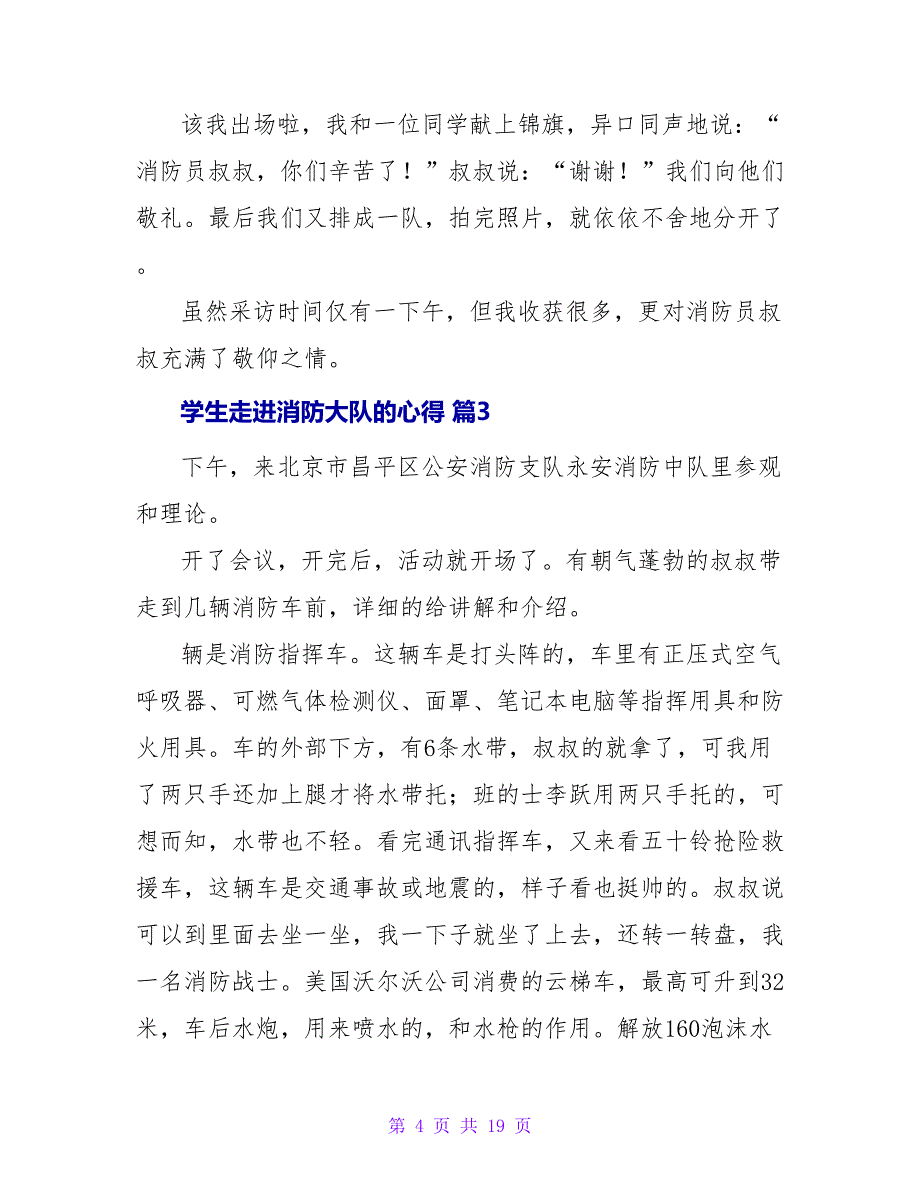 该我出场啦，我和一位同学献上锦旗，异口同声地说：“
消防员叔叔，你们辛苦了！”叔叔说：“谢谢！”我们向他们
敬礼。最后我们又排成一队，拍完照片，就依依不舍地分开了
。
虽然采访时间仅有一下午，但我收获很多，更对消防员叔
叔充满了敬仰之情。
学生走进消防大队的心得 篇3
下午，来北京市昌平区公安消防支队永安消防中队里参观
和理论。
开了会议，开完后，活动就开场了。有朝气蓬勃的叔叔带
走到几辆消防车前，详细的给讲解和介绍。
辆是消防指挥车。这辆车是打头阵的，车里有正压式空气
呼吸器、可燃气体检测仪、面罩、笔记本电脑等指挥用具和防
火用具。车的外部下方，有6条水带，叔叔的就拿了，可我用
了两只手还加上腿才将水带托；班的士李跃用两只手托的，可
想而知，水带也不轻。看完通讯指挥车，又来看五十铃抢险救
援车，这辆车是交通事故或地震的，样子看也挺帅的。叔叔说
可以到里面去坐一坐，我一下子就坐了上去，还转一转盘，我
一名消防战士。美国沃尔沃公司消费的云梯车，最高可升到32
米，车后水炮，用来喷水的，和水枪的作用。解放160泡沫水
第 4 页 共 19 页